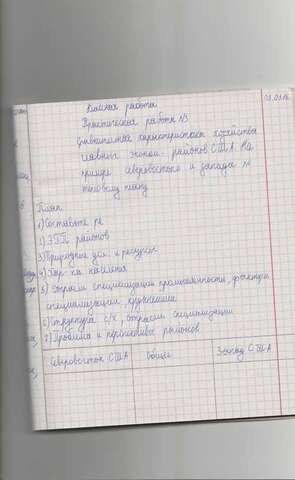 Классная работа
Практическая работа №3
Сравнительная характеристика хозяйства
главных эконом. районов США. На
примере северовостока и запада по
типовому плану
План
1) Составьте ре
2) ЭГП районов
3) Природные усл. и ресурсы
4) Хар-ка населения
5) Отрасли специализации промышленности, факторы
специализации, крупнейшие
6) Структура с/х, отрасли специализации
7) Проблемы и перспективы районов
Северовосток США Общее Запад США